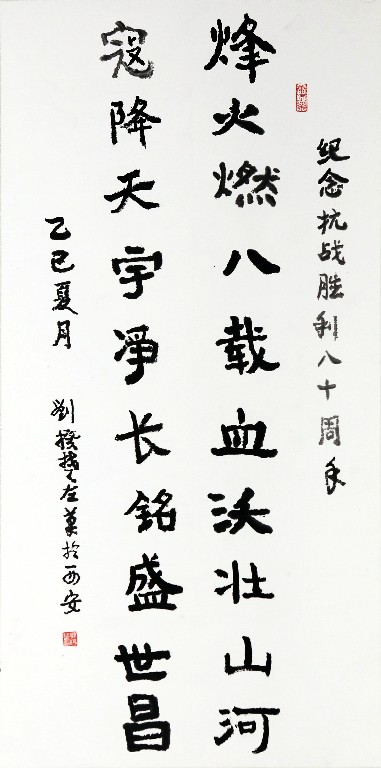 纪念抗战胜利八十周年
烽火燃八载血沃壮山河
寇降天宇净长铭盛世昌
乙巳夏月 劉 於西安